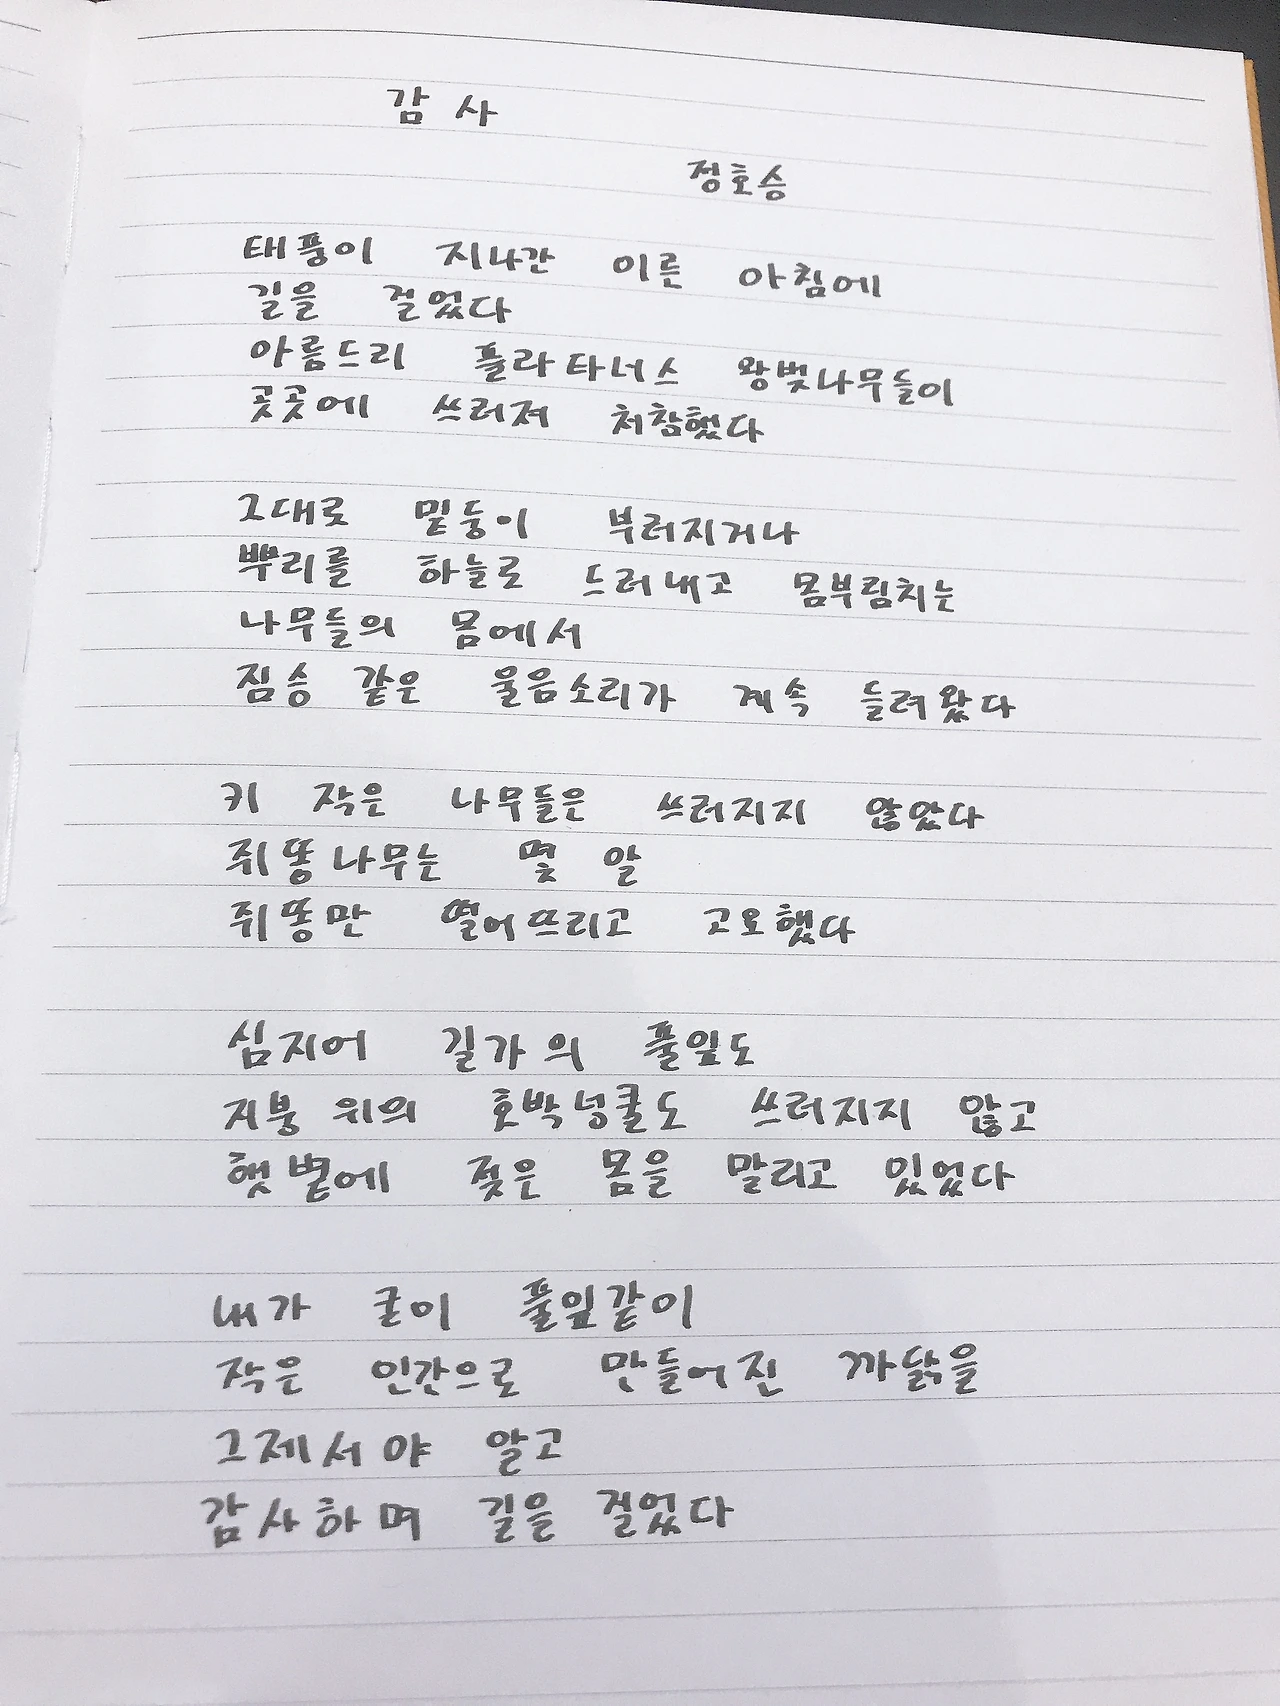 감 사
정호승
태풍이 지나간 이른 아침에
길을 걸었다
아름드리 플라타너스 왕벚나무들이
곳곳에 쓰러져 처참했다
그대로 밑둥이 부러지거나
뿌리를 하늘로 드러내고 몸부림치는
나무들의 몸에서
짐승 같은 울음소리가 계속 들려왔다
키 작은 나무들은 쓰러지지 않았다
쥐똥나무는 몇 알
쥐똥만 떨어뜨리고 고요했다
심지어 길가의 풀잎도
지붕 위의 호박넝쿨도 쓰러지지 않고
햇볕에 젖은 몸을 말리고 있었다
내가 굳이 풀잎같이
작은 인간으로 만들어진 까닭을
그제서야 알고
감사하며 길을 걸었다